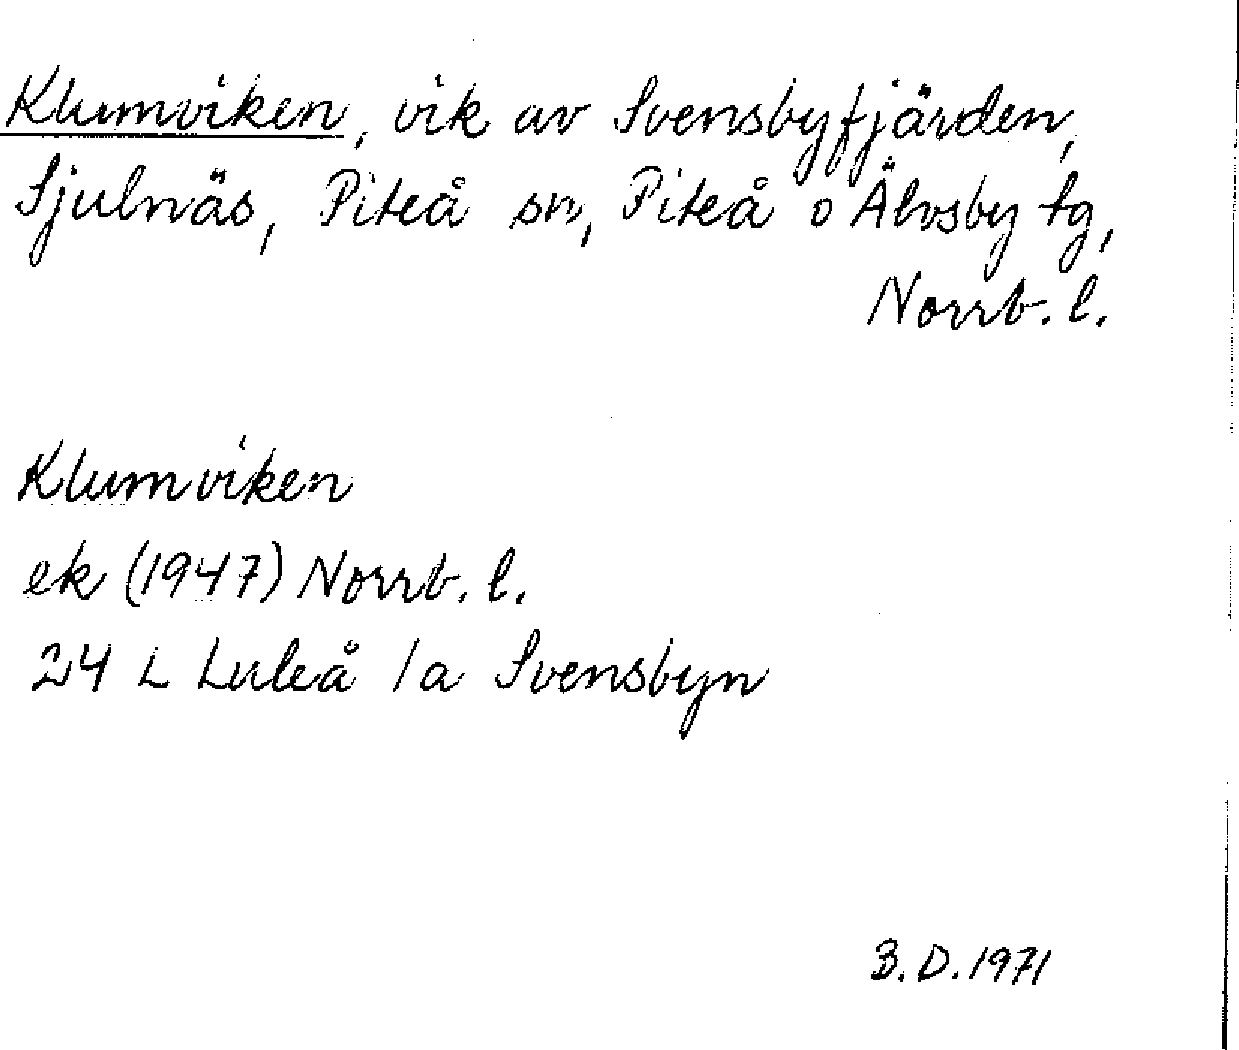 Klumviken, vik av Svensbyfjärden,
Sjulnäs, Piteå sn, Piteå o Älvsby tg,
Norrb. l.
Klumviken
ek (1947) Norrb. l.
24 L Luleå /a Svensbyn
B.D. 1971